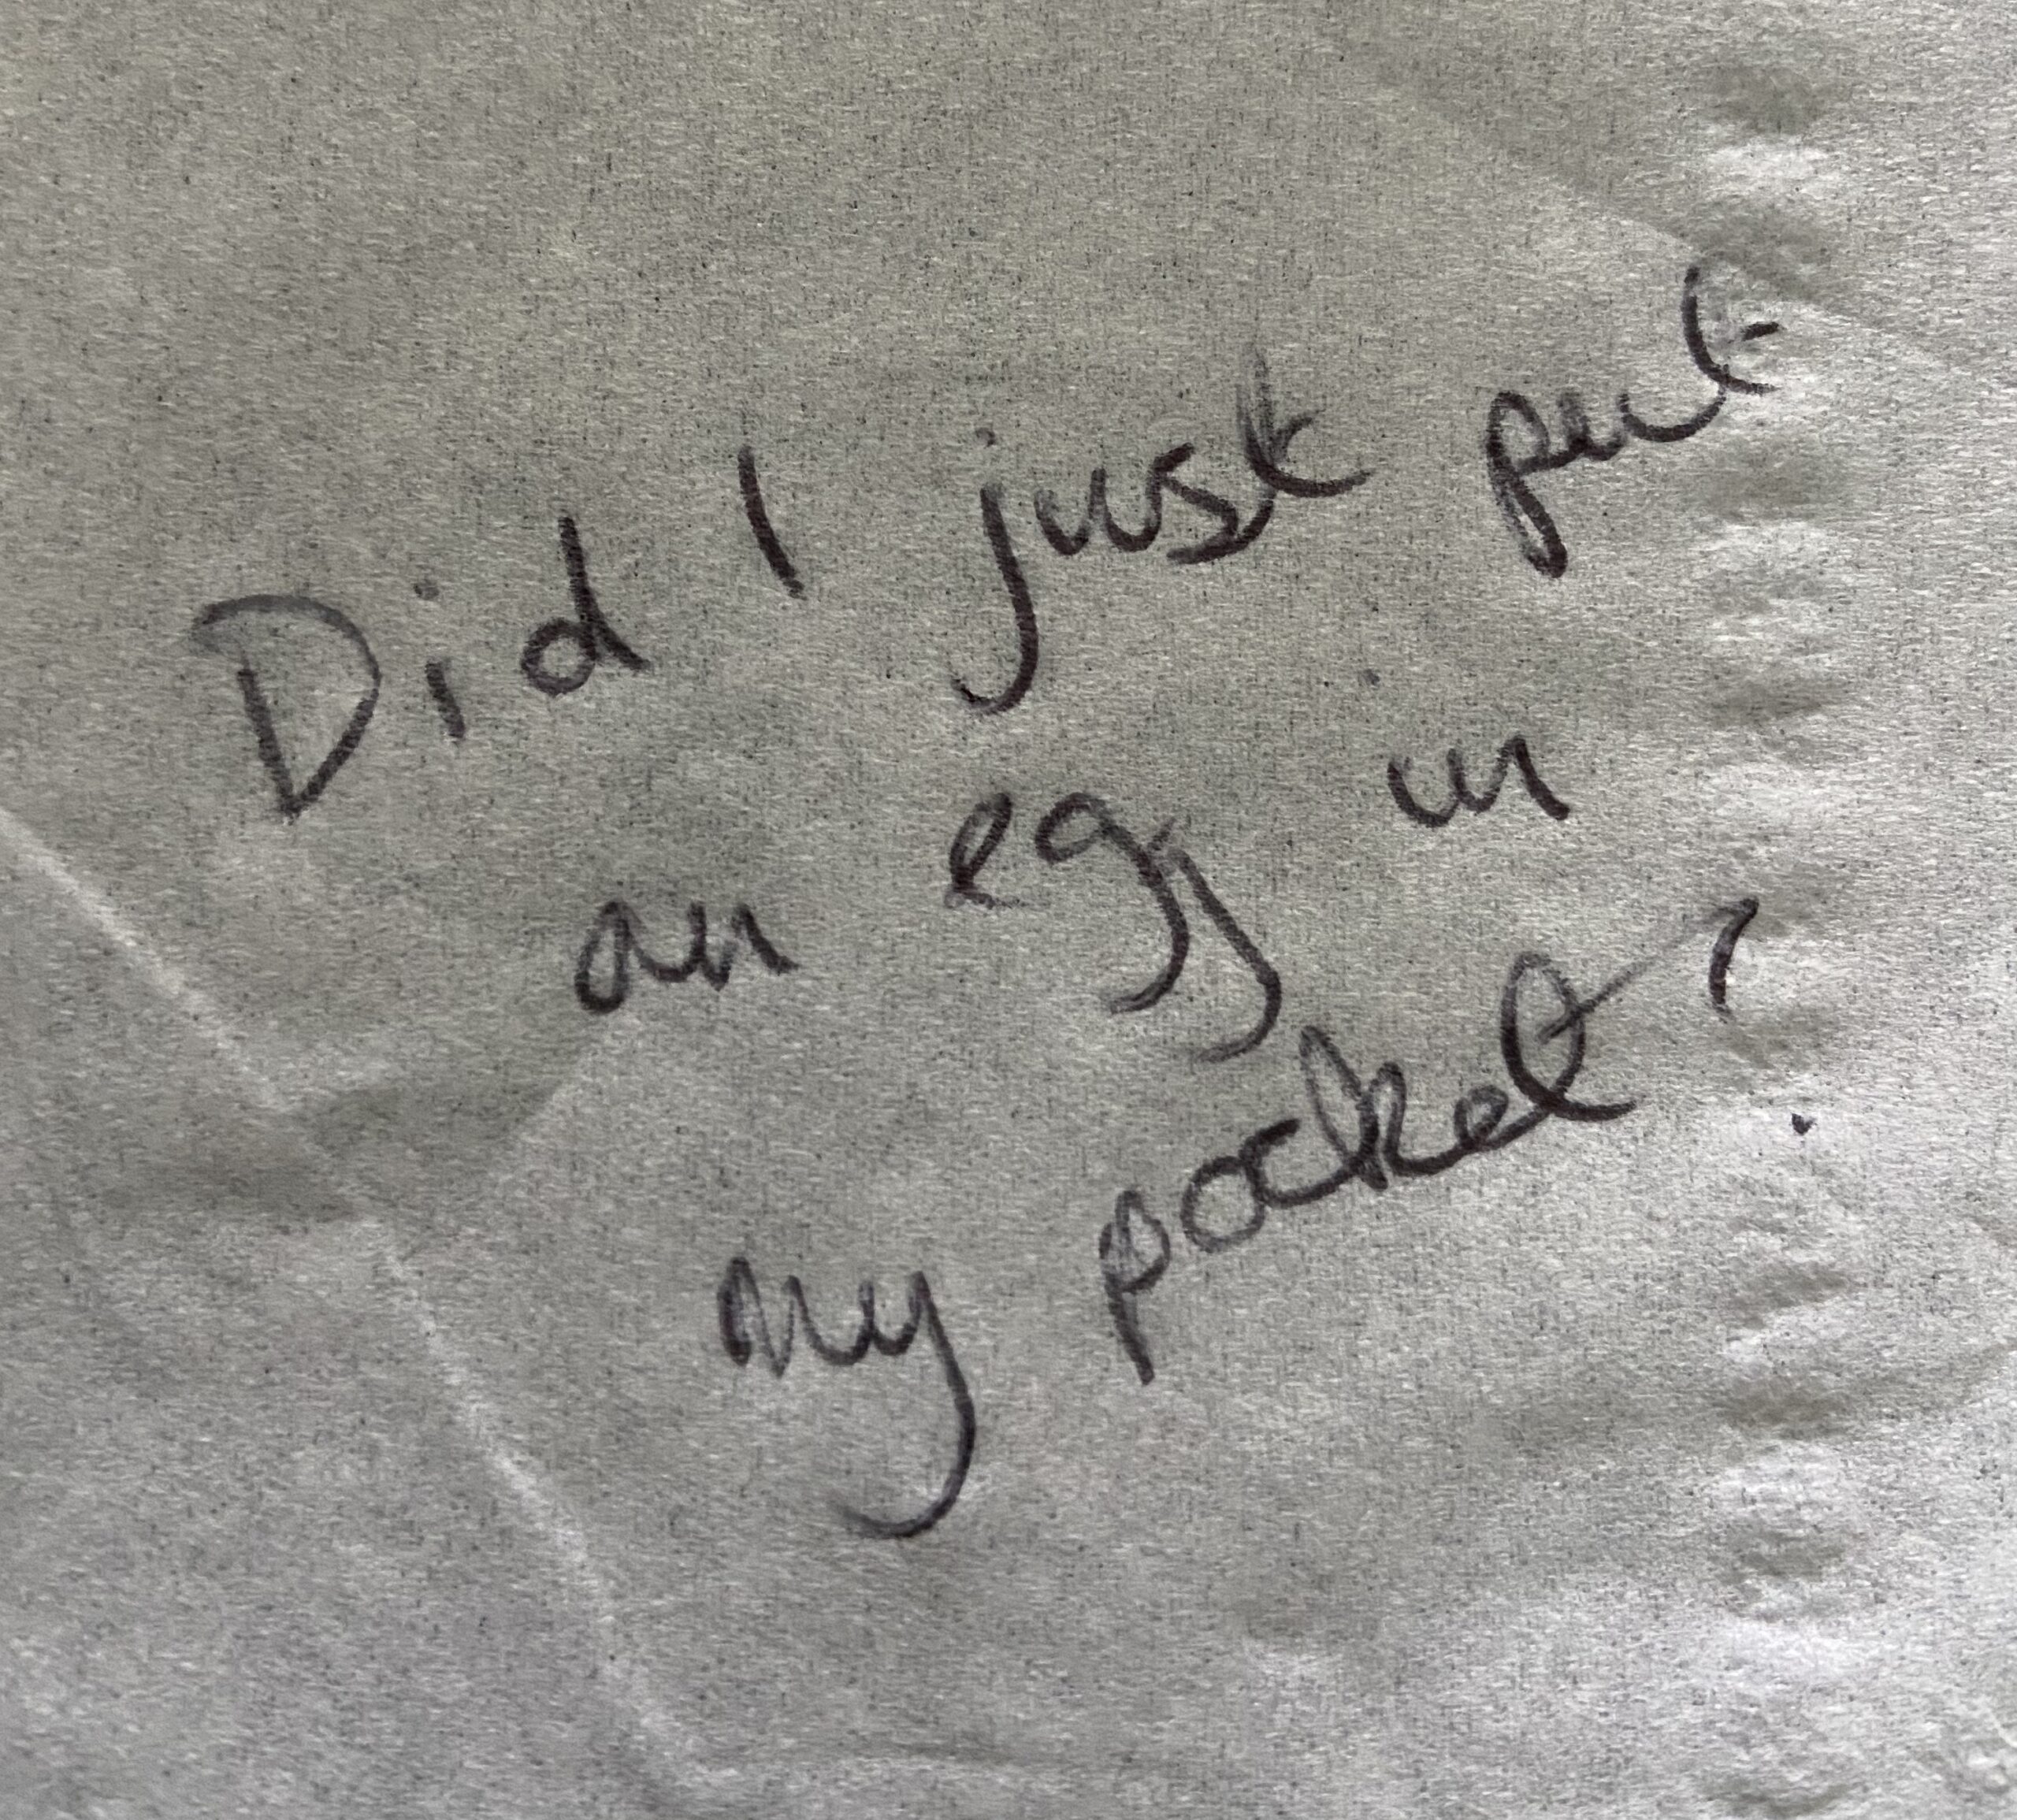 Did I just put
an egg in
my pocket?